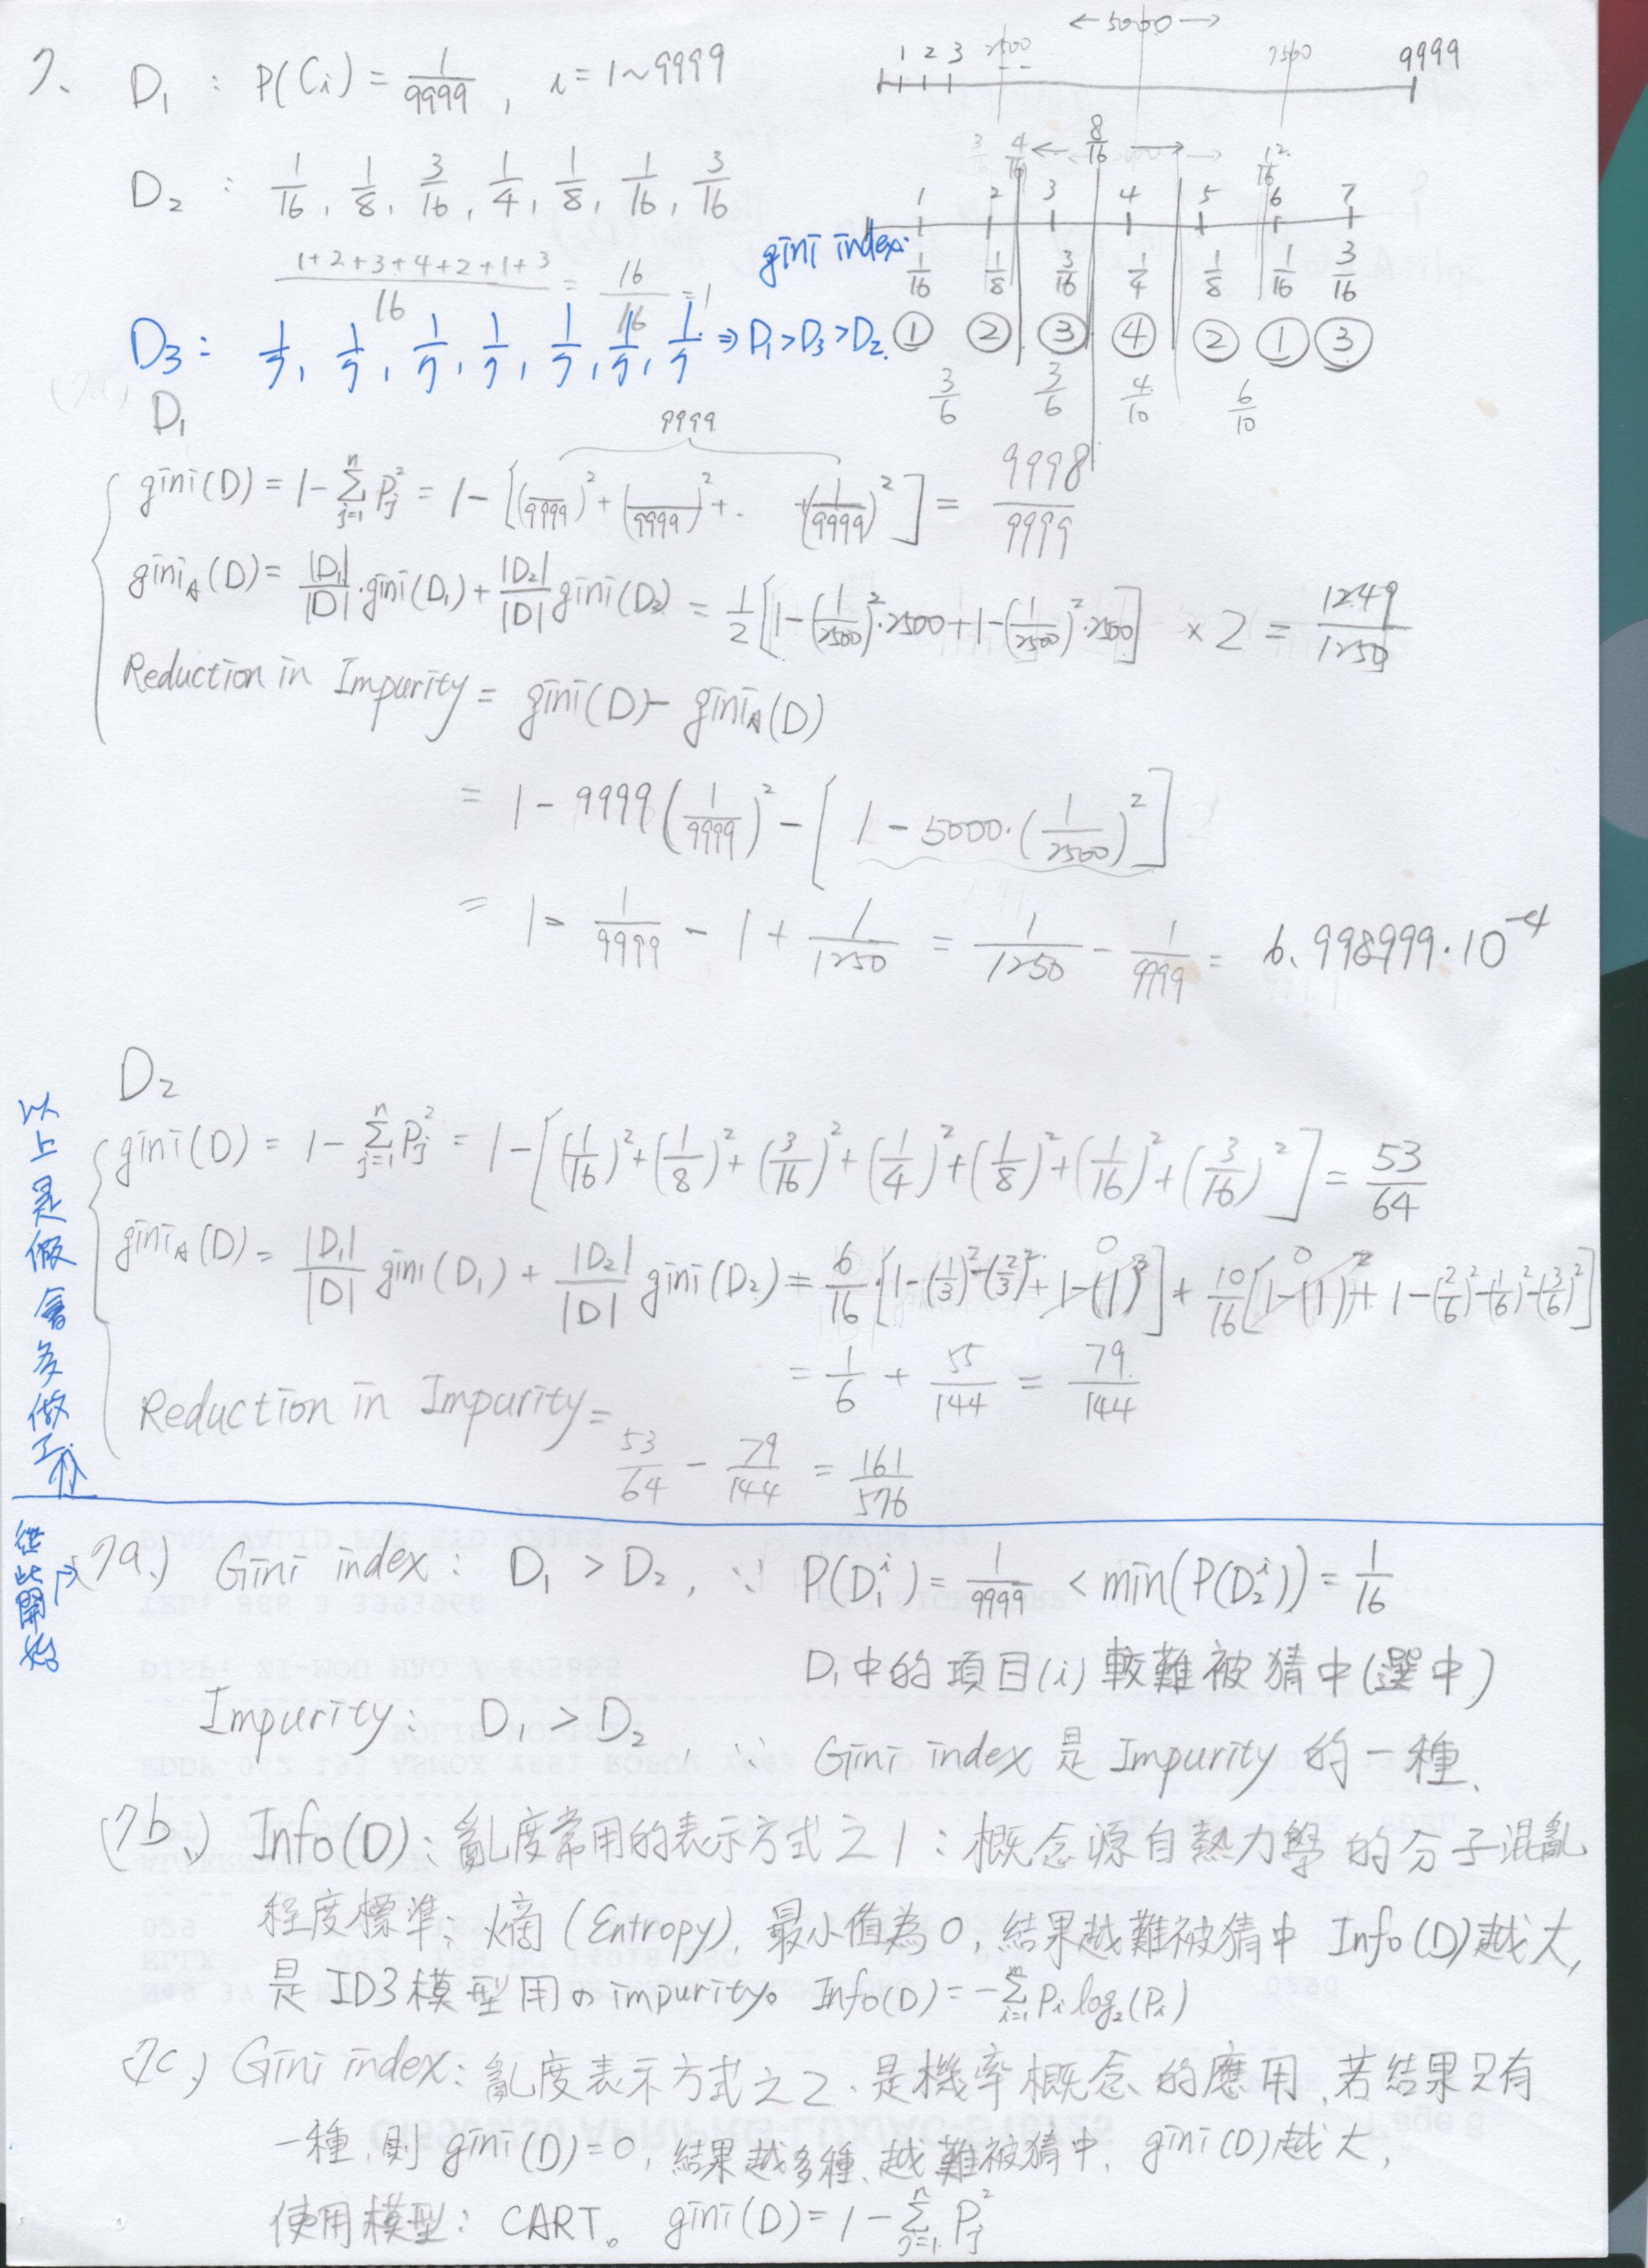 7、 D₁ : P(Cᵢ) = 1/9999 , i = 1~9999
← 5000 →
1 2 3 2500 7500 9999
D₂ : 1/16, 1/8, 3/16, 1/4, 1/8, 1/16, 3/16
(1+2+3+4+2+1+3)/16 = 16/16 = 1
4/16 ← 8/16 → 12/16
1 2 3 4 5 6 7
gini index:
1/16 1/8 3/16 1/4 1/8 1/16 3/16
① ② ③ ④ ② ① ③
3/6 3/6 4/10 6/10
D3: 1/7, 1/7, 1/7, 1/7, 1/7, 1/7, 1/7 ⇒ D₁ > D₃ > D₂.
D₁
9999
gini(D) = 1 - Σ_{j=1}^{n} Pj² = 1 - [(1/9999)² + (1/9999)² + .. +(1/9999)²] = 9998/9999
gini_A(D) = |D₁|/|D| · gini(D₁) + |D₂|/|D| gini(D₂) = 1/2 [1-(1/2500)²·2500 + 1-(1/2500)²·2500] × 2 = 1249/1250
Reduction in Impurity = gini(D) - gini_A(D)
= 1 - 9999 (1/9999)² - [1 - 5000·(1/2500)²]
= 1 - 1/9999 - 1 + 1/1250 = 1/1250 - 1/9999 = 6.998999·10⁻⁴
D₂
gini(D) = 1 - Σ_{j=1}^{n} Pj² = 1 - [(1/16)² + (1/8)² + (3/16)² + (1/4)² + (1/8)² + (1/16)² + (3/16)²] = 53/64
gini_A(D) = |D₁|/|D| gini(D₁) + |D₂|/|D| gini(D₂) = 6/16 · [1-(1/3)²-(2/3)² + 1-(1)²] + 10/16 [1-(1)² + 1-(2/6)²-(1/6)²-(3/6)²]
0 0
= 1/6 + 55/144 = 79/144
Reduction in Impurity =
53/64 - 79/144 = 161/576
以上是假會多做工作
從此開始
(7a.) Gini index: D₁ > D₂, ∵ P(D₁ⁱ) = 1/9999 < min(P(D₂ⁱ)) = 1/16
D₁中的項目(i) 較難被猜中(選中)
Impurity: D₁ > D₂, ∵ Gini index 是 Impurity 的一種、
(7b、) Info(D): 亂度常用的表示方式之1: 概念源自熱力學的分子混亂
程度標準: 熵 (Entropy), 最小值為0, 結果越難被猜中 Info(D)越大,
是ID3模型用の impurity。 Info(D) = -Σ_{i=1}^{m} Pᵢ log₂(Pᵢ)
(7c、) Gini index: 亂度表示方式之2、是機率概念的應用, 若結果只有
一種, 則 gini(D)=0, 結果越多種、越難被猜中, gini(D)越大,
使用模型: CART。 gini(D) = 1 - Σ_{j=1}^{n} Pj²